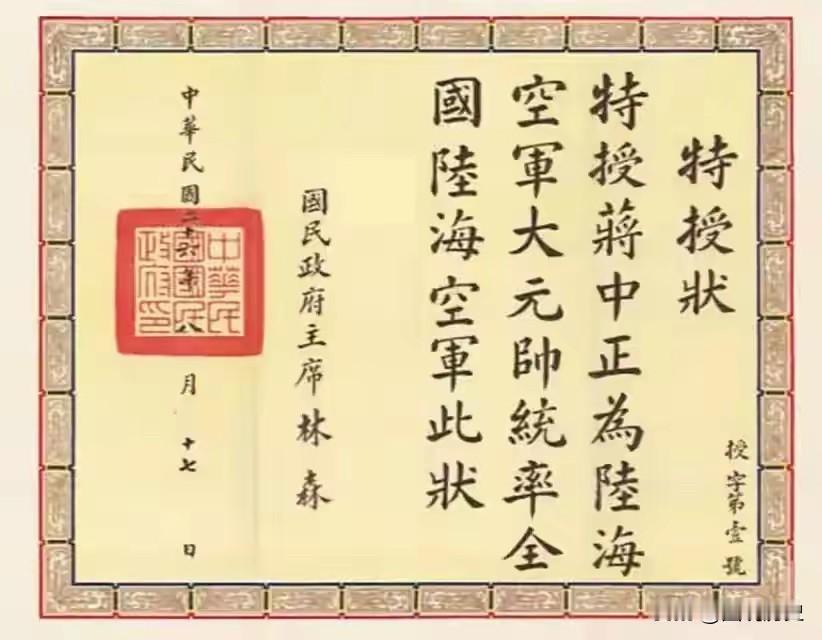 授字第壹號
特授狀
特授蔣中正為陸海
空軍大元帥統率全
國陸海空軍此狀
國民政府主席林森
中華民國二十六年八月十七日
中華民國國民政府印